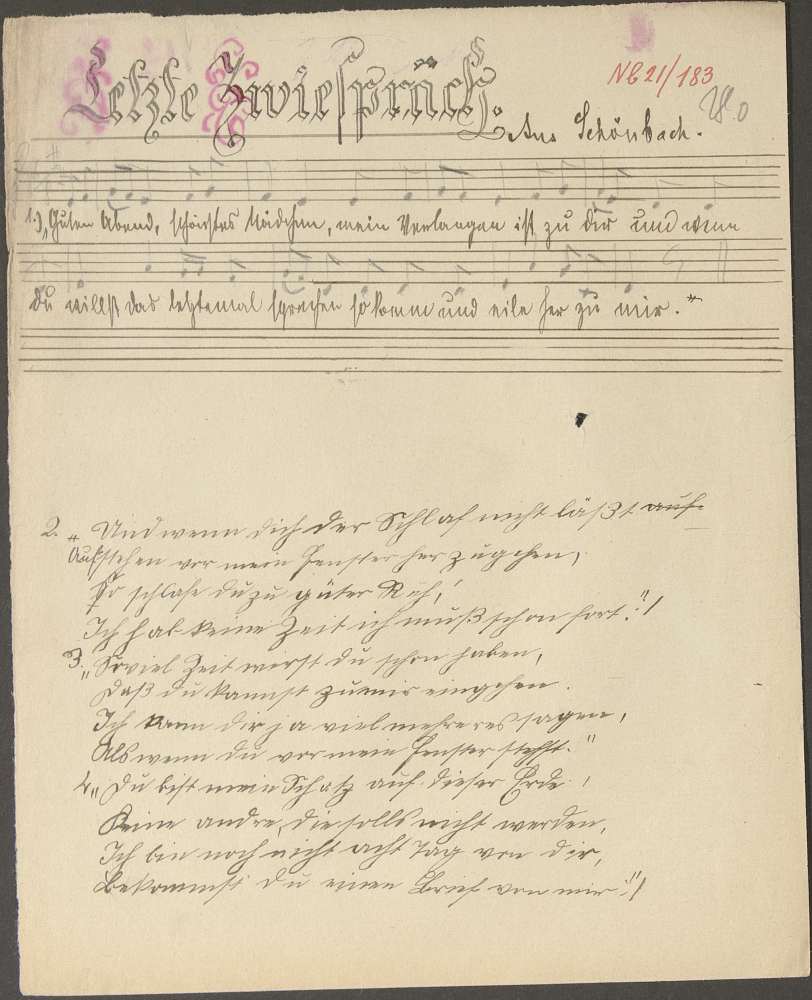 Letzte Zwiesprach.
NB 21/183
Aus Schönbach.
1.) „Guten Abend, schönstes Mädchen, mein Verlangen ist zu dir und wenn
du willst das letztemal sprechen so komm und eile her zu mir."
2. „Und wenn dich der Schlaf nicht läßt auf-
Aufstehen vor mein Fenster her zugehen,
So schlafe du zu guter Ruh,
Ich hab keine Zeit ich muß schon fort."!
3. „Soviel Zeit wirst du schon haben,
Daß du kannst zu mir eingehen.
Ich kann dir ja viel mehreres sagen,
Als wenn du vor mein Fenster stehst."
4. „Du bist mein Schatz auf dieser Erde,
Keine andre, die solls nicht werden,
Ich bin noch nicht acht Tag von dir,
Bekommst du einen Brief von mir"!